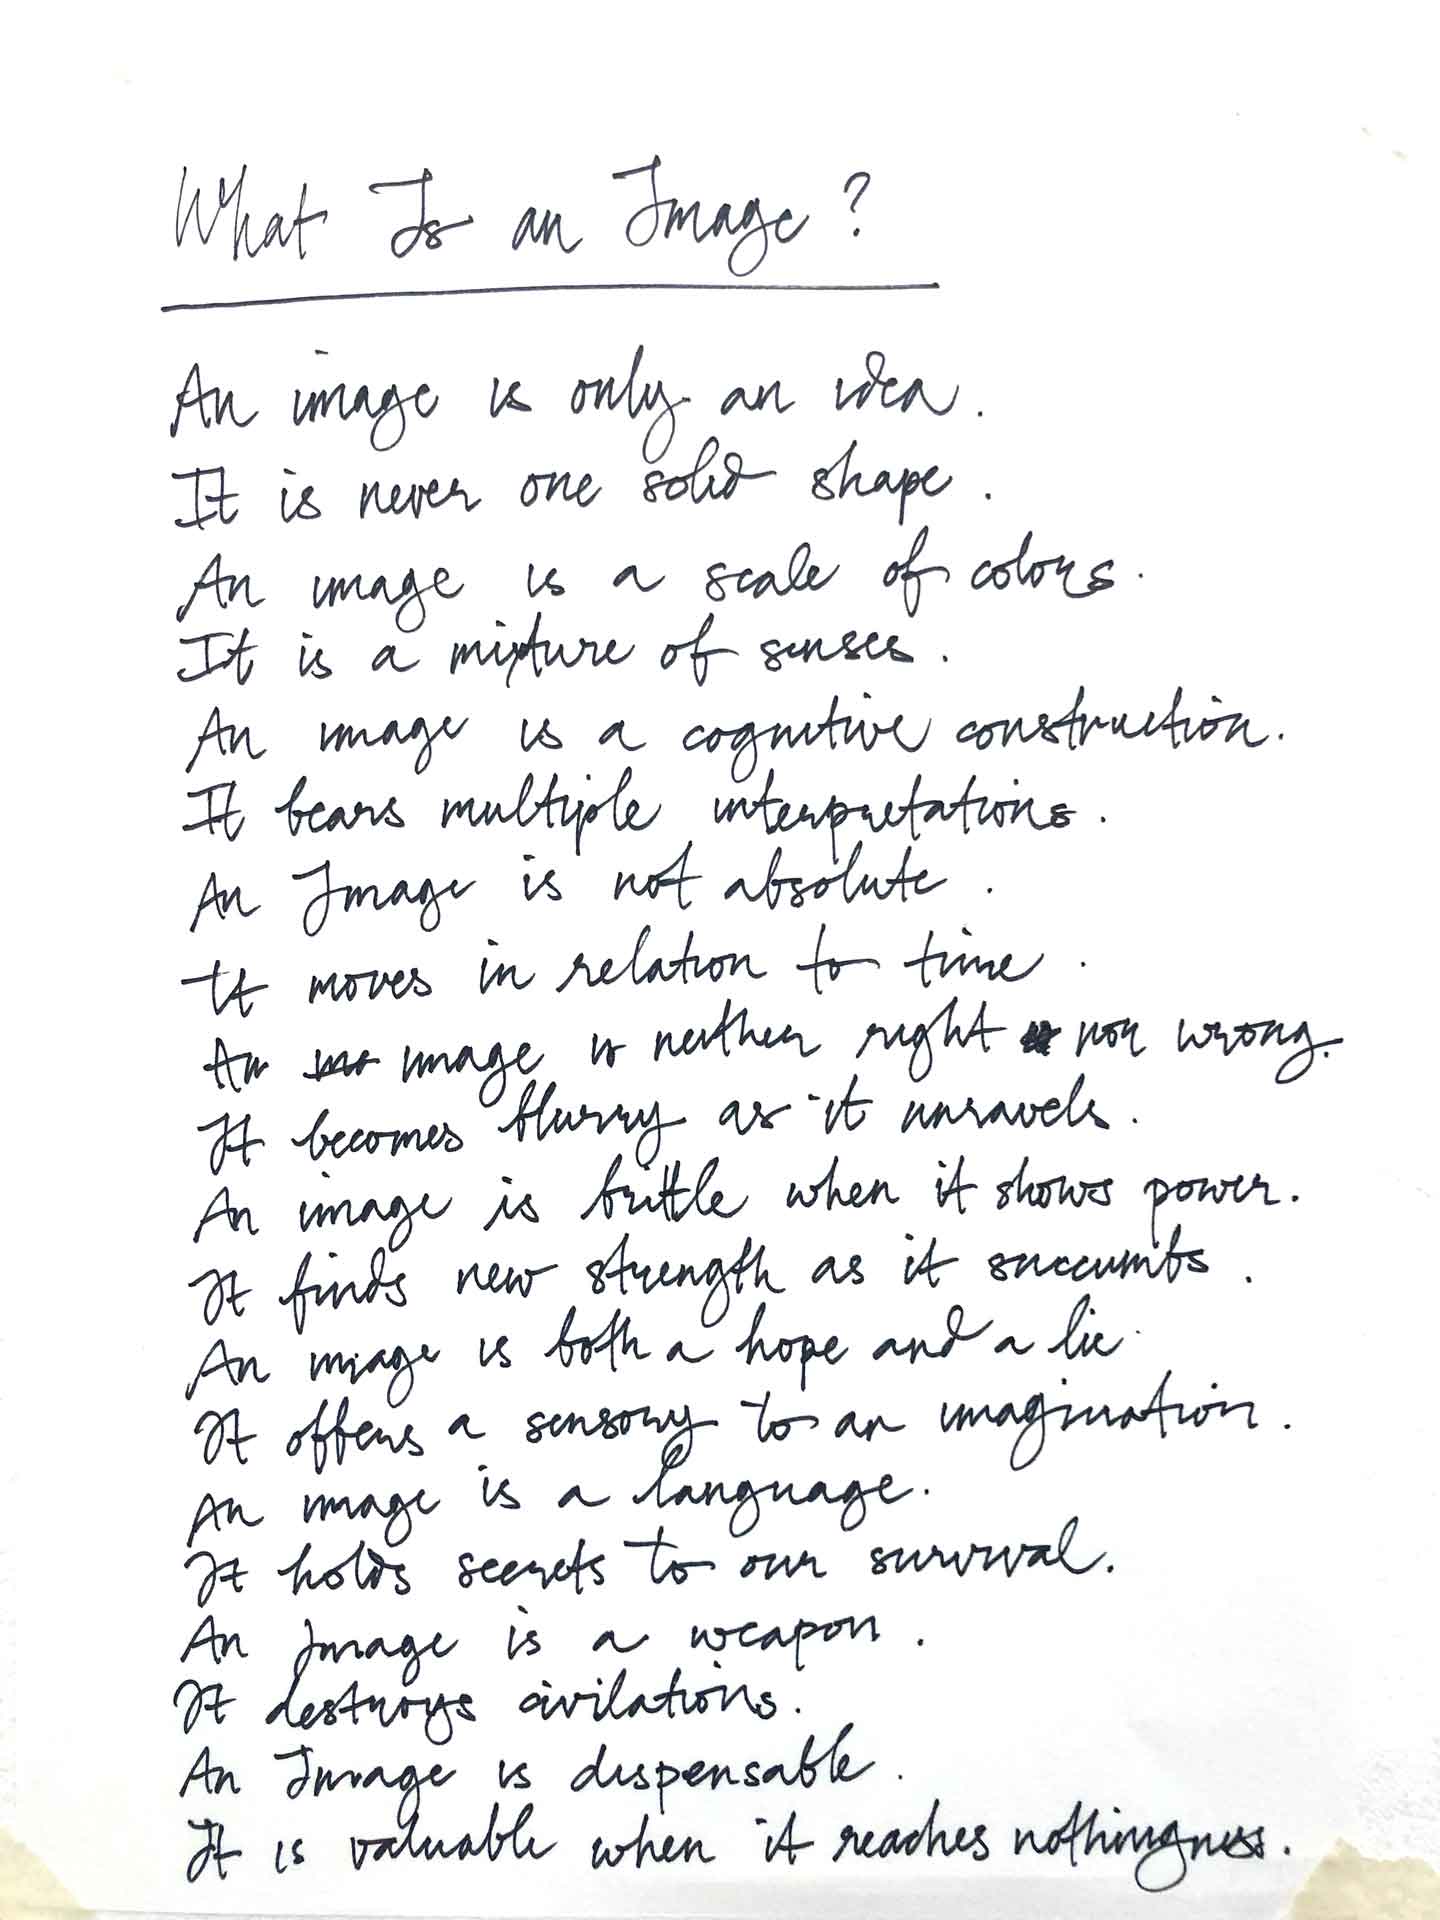 What Is an Image?
An image is only an idea.
It is never one solid shape.
An image is a scale of colors.
It is a mixture of senses.
An image is a cognitive construction.
It bears multiple interpretations.
An Image is not absolute.
It moves in relation to time.
An image is neither right nor wrong.
It becomes blurry as it unravels.
An image is brittle when it shows power.
It finds new strength as it succumbs.
An image is both a hope and a lie.
It offers a sensory to an imagination.
An image is a language.
It holds secrets to our survival.
An Image is a weapon.
It destroys civilations.
An Image is dispensable.
It is valuable when it reaches nothingness.